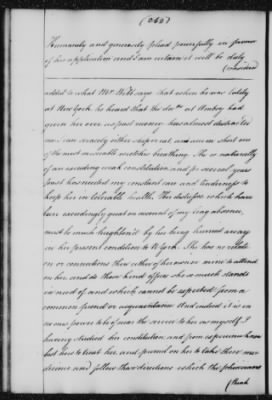 (260)
Humanity and generosity plead powerfully in favour
of his application and I am certain it will be duly
(considered
added to what Mr. Wells says that when he was lately
at New York he heard that the at Amboy had
given her over as past saving has almost distracted
me. I can scarcely either sleep or eat and am in short one
of the most miserable wretches breathing. She is naturally
of an exceeding weak constitution and for several years
past has needed my constant care and tenderness to
keep her in tolerable health. The distress which have
been exceedingly great on account of my long absence,
must be much heightened by her being hurried away
in her present condition to N. York. She has no relation
or connections there either of her own or mine to attend
on her and do those kind offices she so much stands
in need of and which cannot be expected from a
common friend or acquaintance. And indeed it is in
no ones power to be of near the service to her as myself. I
having studied her constitution and from experience know
best how to treat her, and prevail on her to take those me
dicines and follow those directions which the physicians
(think